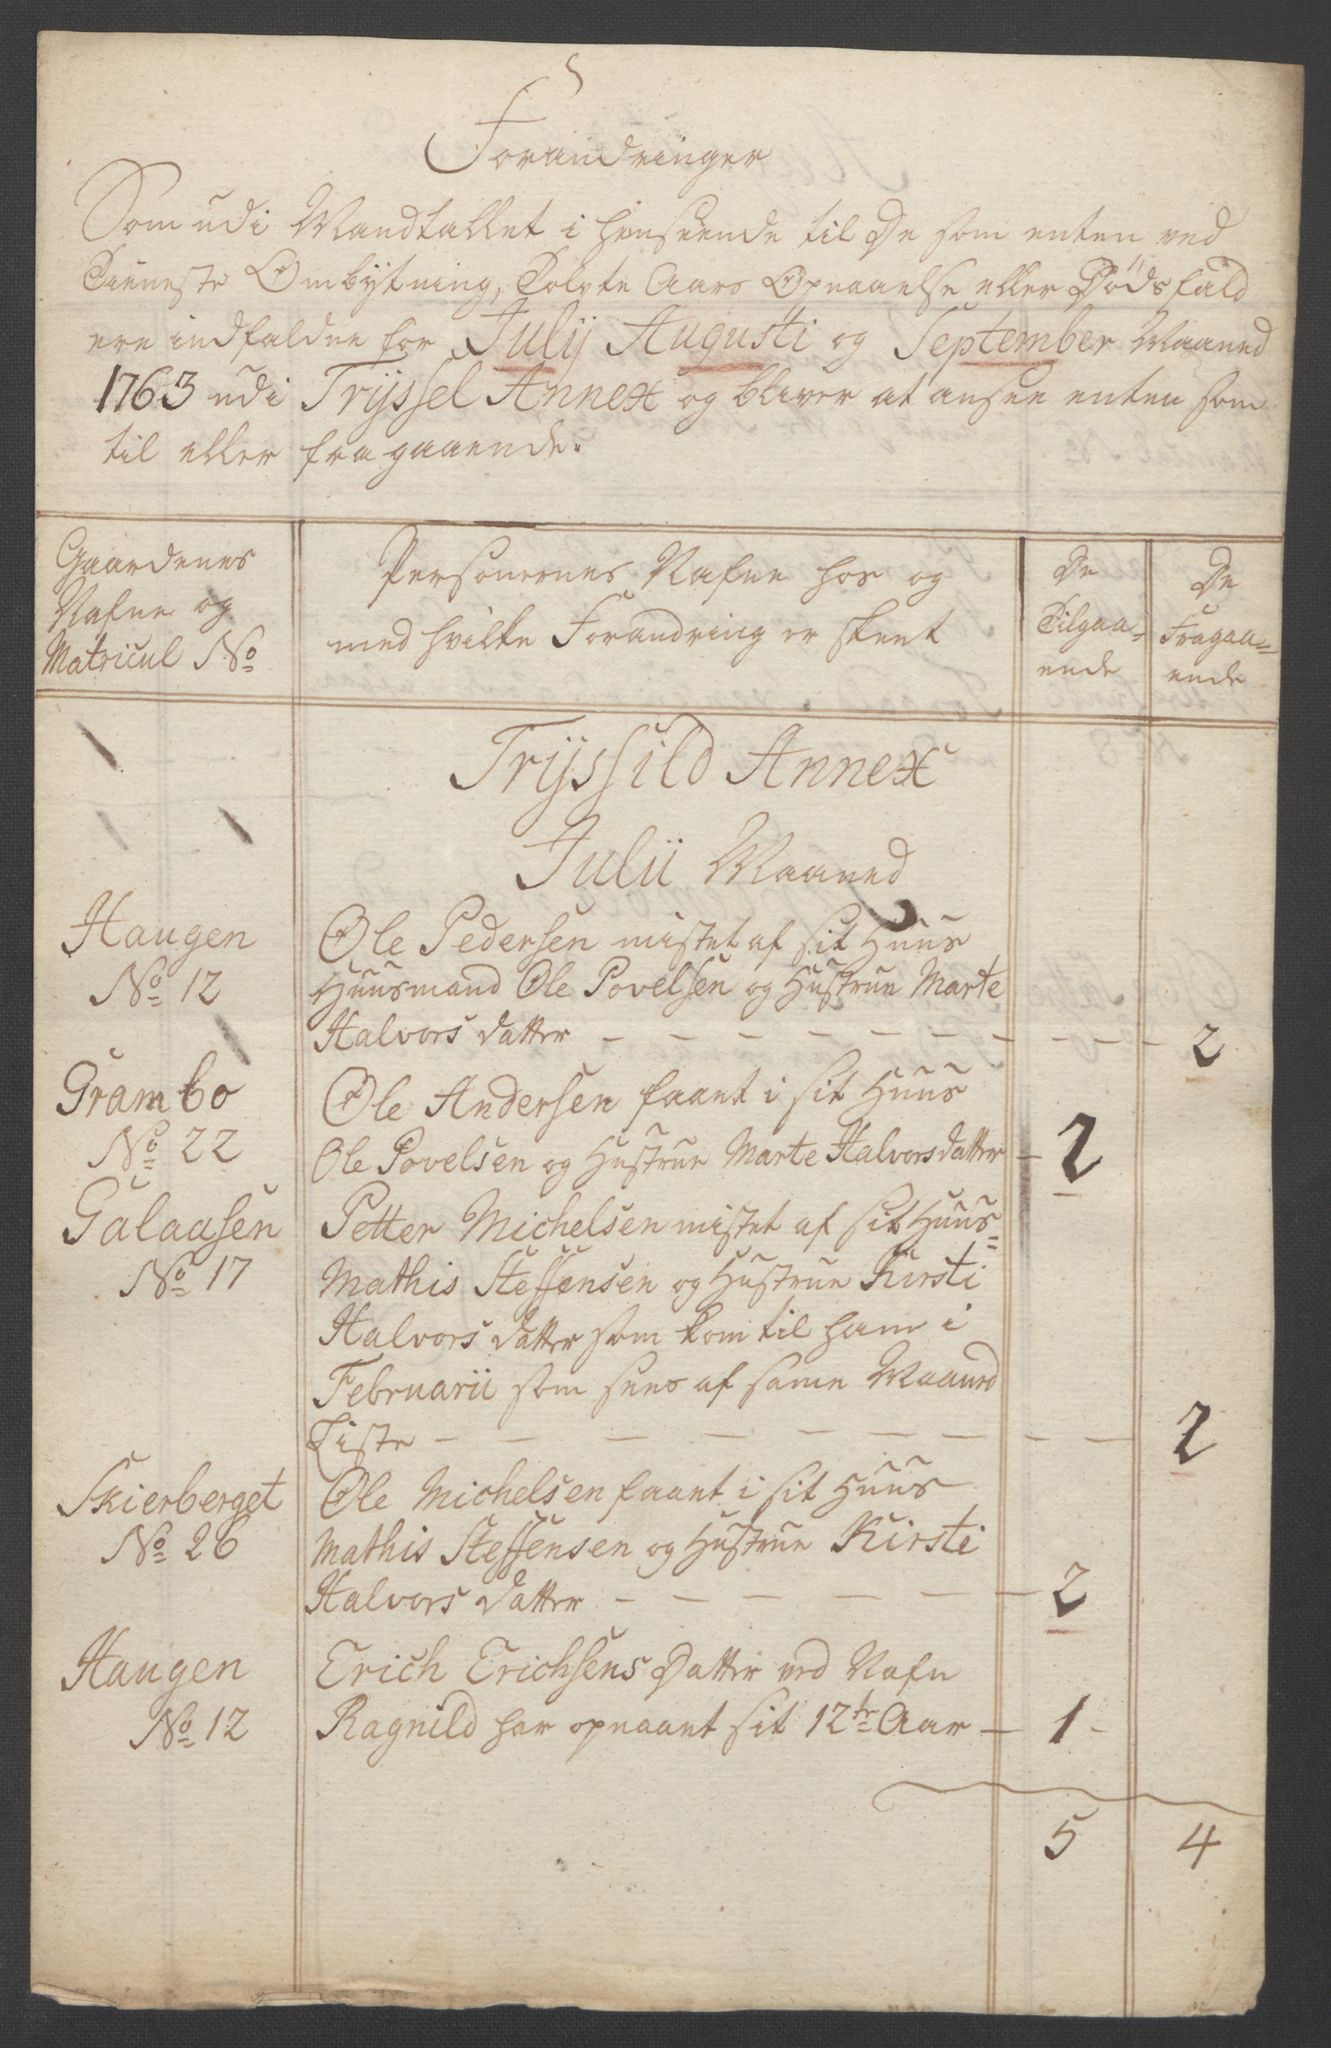 Forandringer
Som udi Mandtallet i henseende til De som enten ved
Tieneste Ombÿtning, Tolvte Aars Opnaaelse eller Dødsfald
ere indfaldne for Julÿ Augusti og September Maaned
1763 udi Trÿssel Annex og bliver at ansee enten som
til eller fragaaende.
Gaardenes
Nafne og
Matricul No
Personernes Nafne hos og
med hvilke Forandring er skeet
De
Tilgaa-
ende
De
Fragaa-
ende
Trÿssild Annex
Julii Maaned
Haugen
No 12
Ole Pedersen mistet af sit Huus
Huusmand Ole Povelsen og Hustrue Marte
Halvors Datter - - - - - - - - - 2
Grambo
No 22
Ole Andersen faaet i sit Huus
Ole Povelsen og Hustrue Marte Halvorsdatter - 2
Galaasen
No 17
Petter Michelsen mistet af sit Huus
Mathis Steffensen og Hustrue Kirsti
Halvors Datter som kom til ham i
Februarii som sees af samme Maaned
Liste - - - - - - - - - 2
Skierberget
No 26
Ole Michelsen faaet i sit Huus
Mathis Steffensen og Hustrue Kirsti
Halvors Datter - - - - - - 2
Haugen
No 12
Erich Erichsens Datter ved Nafn
Ragnild har opnaaet sit 12te Aar - 1 -
5 4